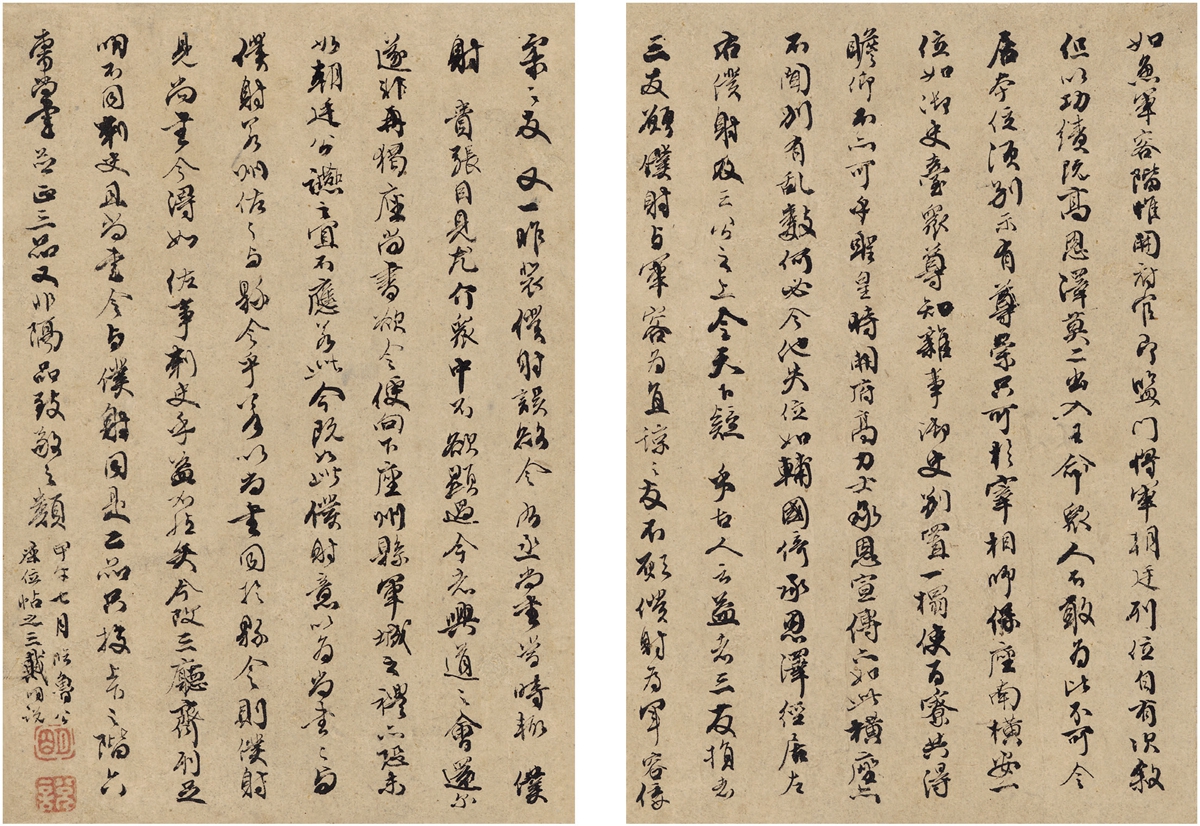 如魚軍容階雖開府官即監門將軍朝廷列位自有次敘
但以功績既高恩澤莫二出入王命眾人不敢為比不可令
居本位須別示有尊崇只可於宰相師保座南橫安一
位如御史臺眾尊知雜事御史別置一榻使百寮共得
瞻仰不亦可乎聖皇時開府高力士承恩宣傳亦如此橫座亦
不聞別有亂數何必令他失位如輔國倚承恩澤徑居左
右僕射及三公之上令天下疑 乎古人云益者三友損者
三友願僕射與軍容為直諒之友不願僕射為軍容佞
柔之友 又一昨裴僕射誤欲令左丞尚書當時輒 僕
射 貴張目見尤介眾中不欲顯過今者興道之會還尔
遂非再猲座尚書欲令便向下座州縣軍城之禮亦恐未
如朝廷公讌之宜不應若此今既如此僕射意以為尚書之與
僕射若州佐之與縣令乎若以為尚書同於縣令則僕射
見尚書令得如佐事刺史乎益不然矣今既三廳齊列足
明不同刺史且尚書令與僕射同是二品只校上下之階六
曹尚書並正三品又非隔品致敬之類
甲午七月臨魯公
座位帖之三戴明說